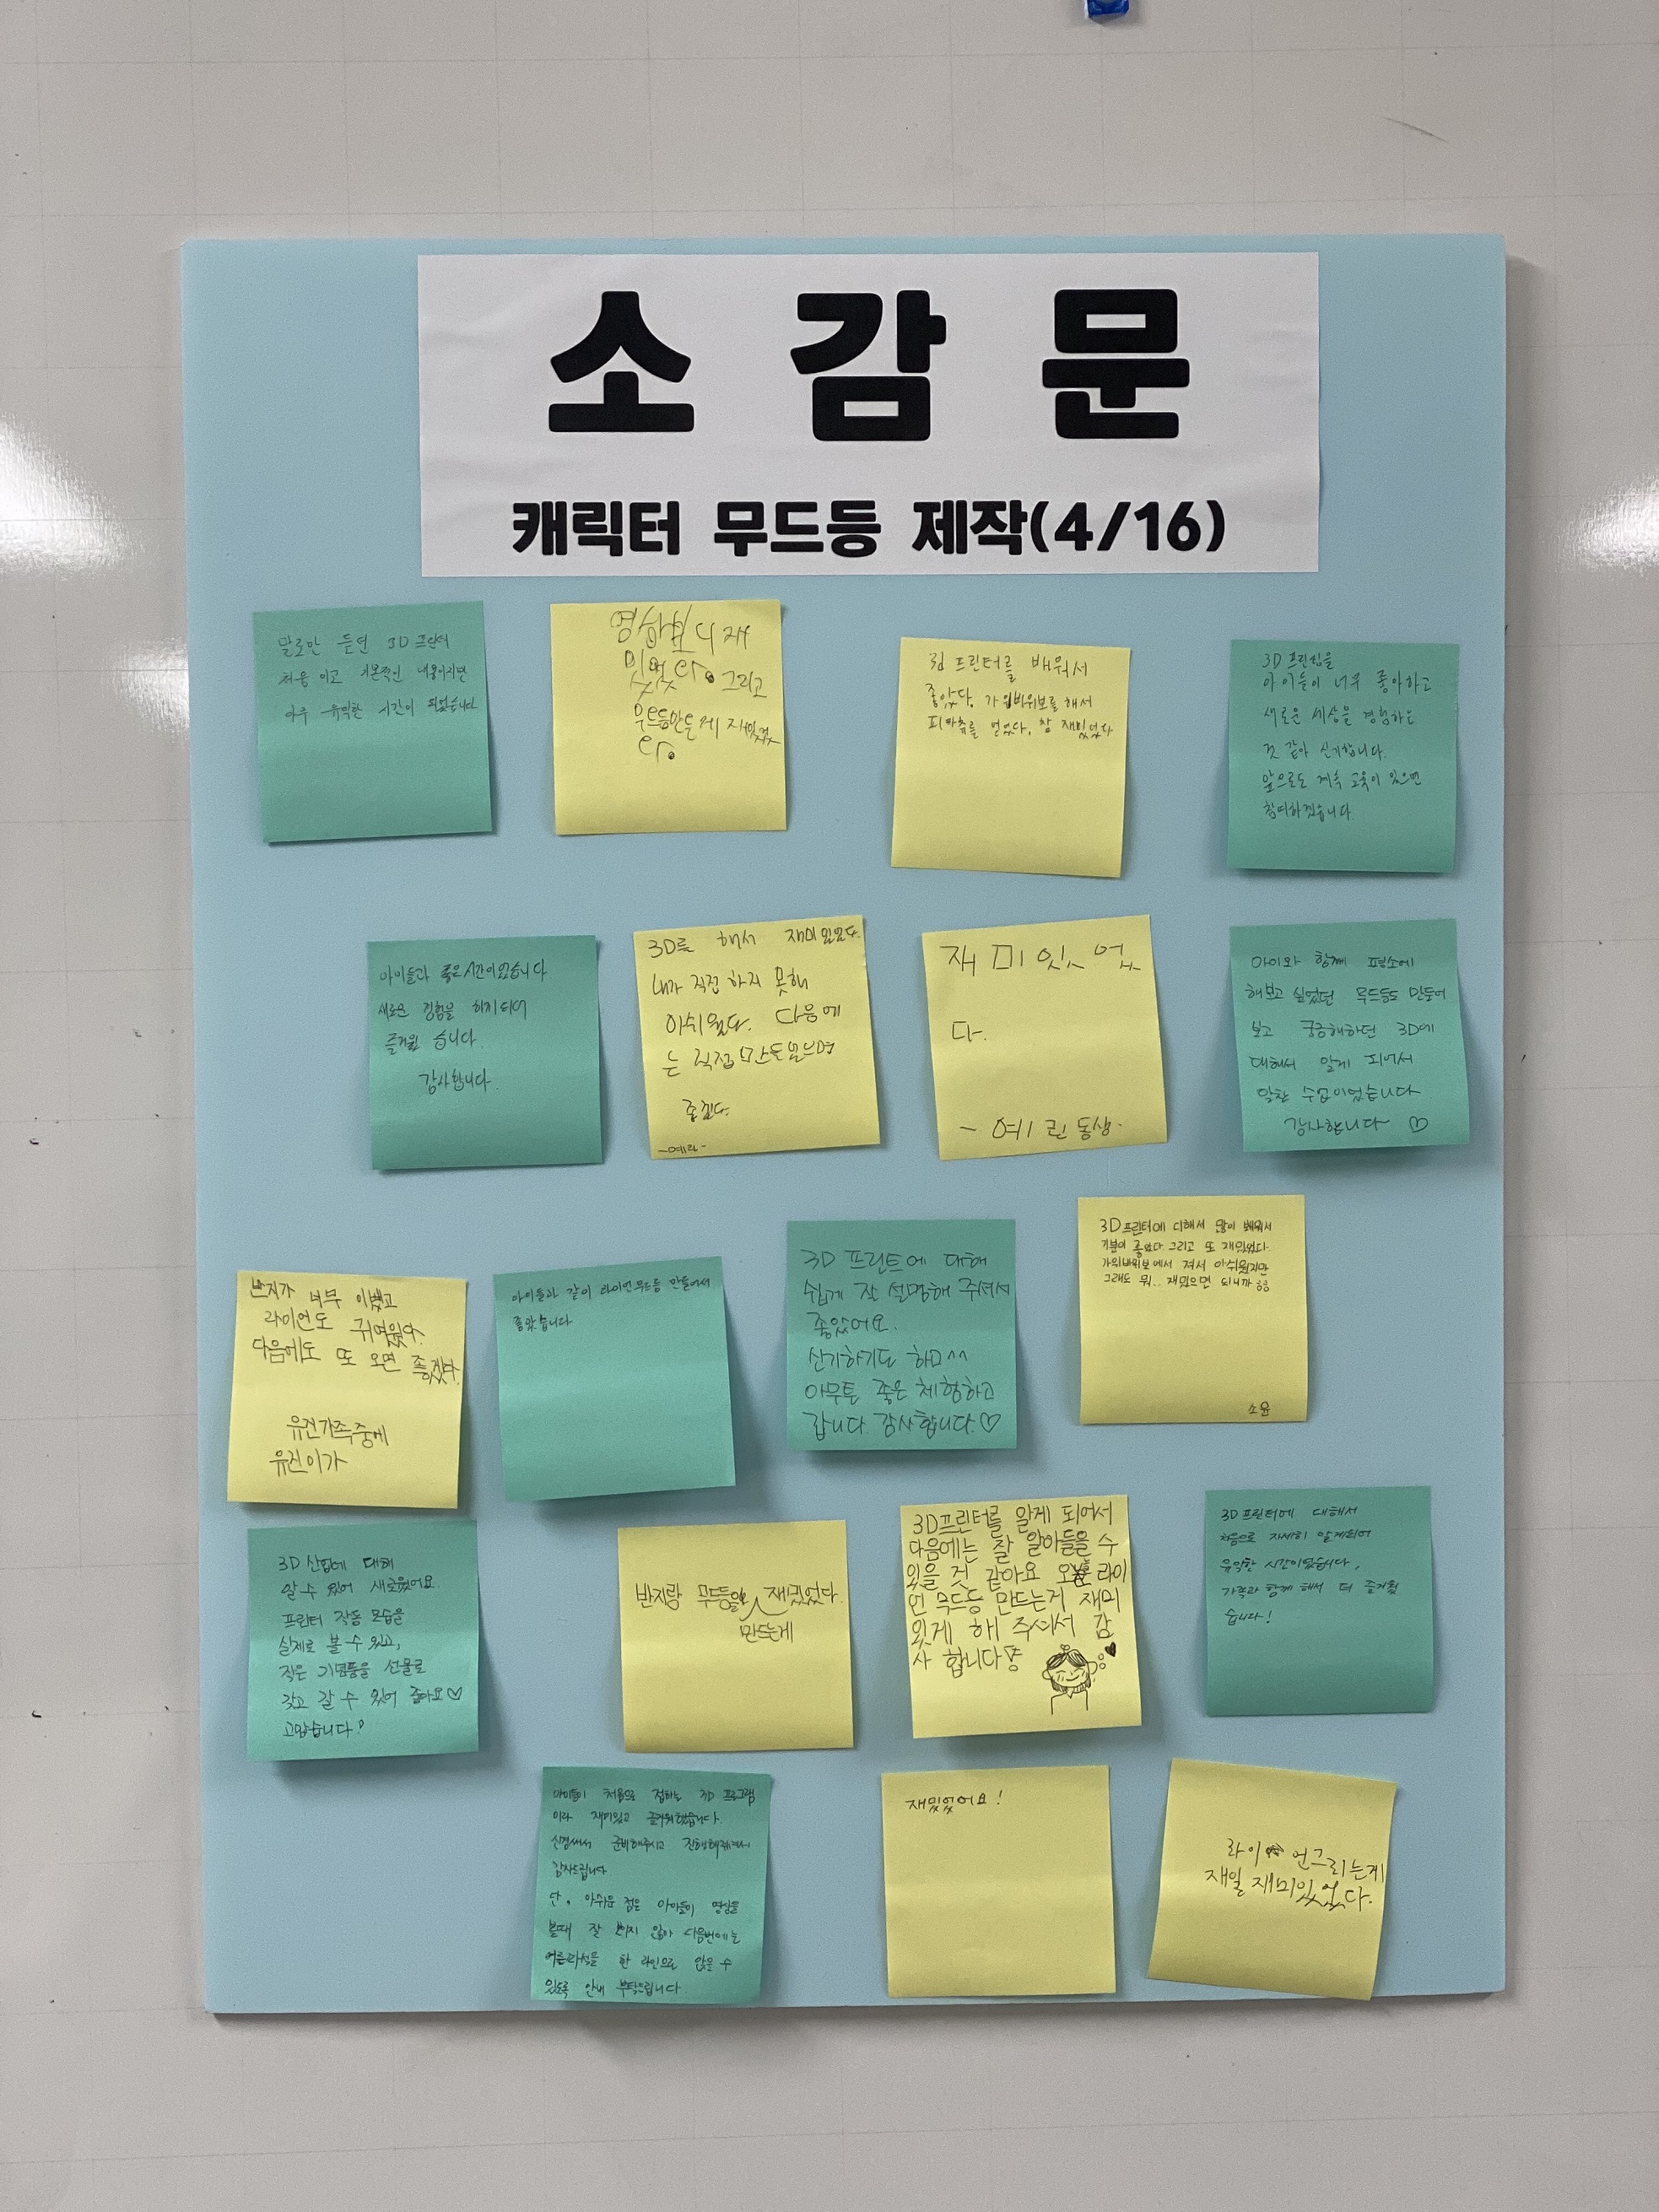 소 감 문
캐릭터 무드등 제작(4/16)
말로만 듣던 3D 프린터
처음 이고 기본적인 내용이지만
아주 유익한 시간이 되었습니다
영상보니 재
밌었다. 그리고
무드등만들게 재밌었
다.
3D 프린터를 배워서
좋았다. 가위바위보를 해서
피카츄를 얻었다, 참 재밌었다
3D 프린팅을
아이들이 너무 좋아하고
새로운 세상을 경험하는
것 같아 신기합니다.
앞으로도 계속 교육이 있으면
참여하겠습니다.
아이들과 좋은시간이었습니다
새로운 경험을 하게되어
즐거웠 습니다.
감사합니다.
3D를 해서 재미있었다.
내가 직접 하지 못해
아쉬웠다. 다음에
는 직접 만드었으면
좋겠다.
재 미 있 었
다.
동생.
아이와 함께 평소에
해보고 싶었던 무드등도 만들어
보고 궁금해하던 3D에
대해서 알게 되어서
알찬 수업이었습니다
감사합니다 ♡
반지가 너무 이뻤고
라이언도 귀여웠다.
다음에도 또 오면 좋겠다.
유건가족중에
유진이가
아이들과 같이 라이언무드등 만들어서
좋았습니다
3D 프린트에 대해
쉽게 잘 설명해 주셔서
좋았어요.
신기하기도 하고^^
아무튼 좋은 체험하고
갑니다. 감사합니다.♡
3D프린터에 대해서 많이 배워서
기분이 좋았다 그리고 또 재밌었다.
가위바위보에서 져서 아쉬웠지만
그래도 뭐.. 재밌으면 되니까 ㅎㅎ
소윤
3D 산업에 대해
알 수 있어 새로웠어요.
프린터 작동 모습을
실제로 볼 수 있고,
작은 기념품을 선물로
갖고 갈 수 있어 좋아요♡
고맙습니다!
반지랑 무드등을 만드는게 재밌었다.
3D프린터를 알게 되어서
다음에는 잘 알아들을 수
있을 것 같아요 오늘 라이
언 무드등 만드는게 재미
있게 해 주셔서 감
사 합니다
3D프린터에 대해서
처음으로 자세히 알게되어
유익한 시간이었습니다,
가족과 함께 해서 더 즐거웠
습니다!
아이들이 처음으로 접하는 3D 프로그램
이라 재미있고 즐거워했습니다.
신경써서 준비해주시고 진행해주셔서
감사드립니다
단, 아쉬운 점은 아이들이 영상을
볼때 잘 보이지 않아 다음번에는
어른좌석을 한 라인으로 앉을 수
있도록 안내 부탁드립니다.
재밌었어요!
라이언그리는게
재일 재미있었다.